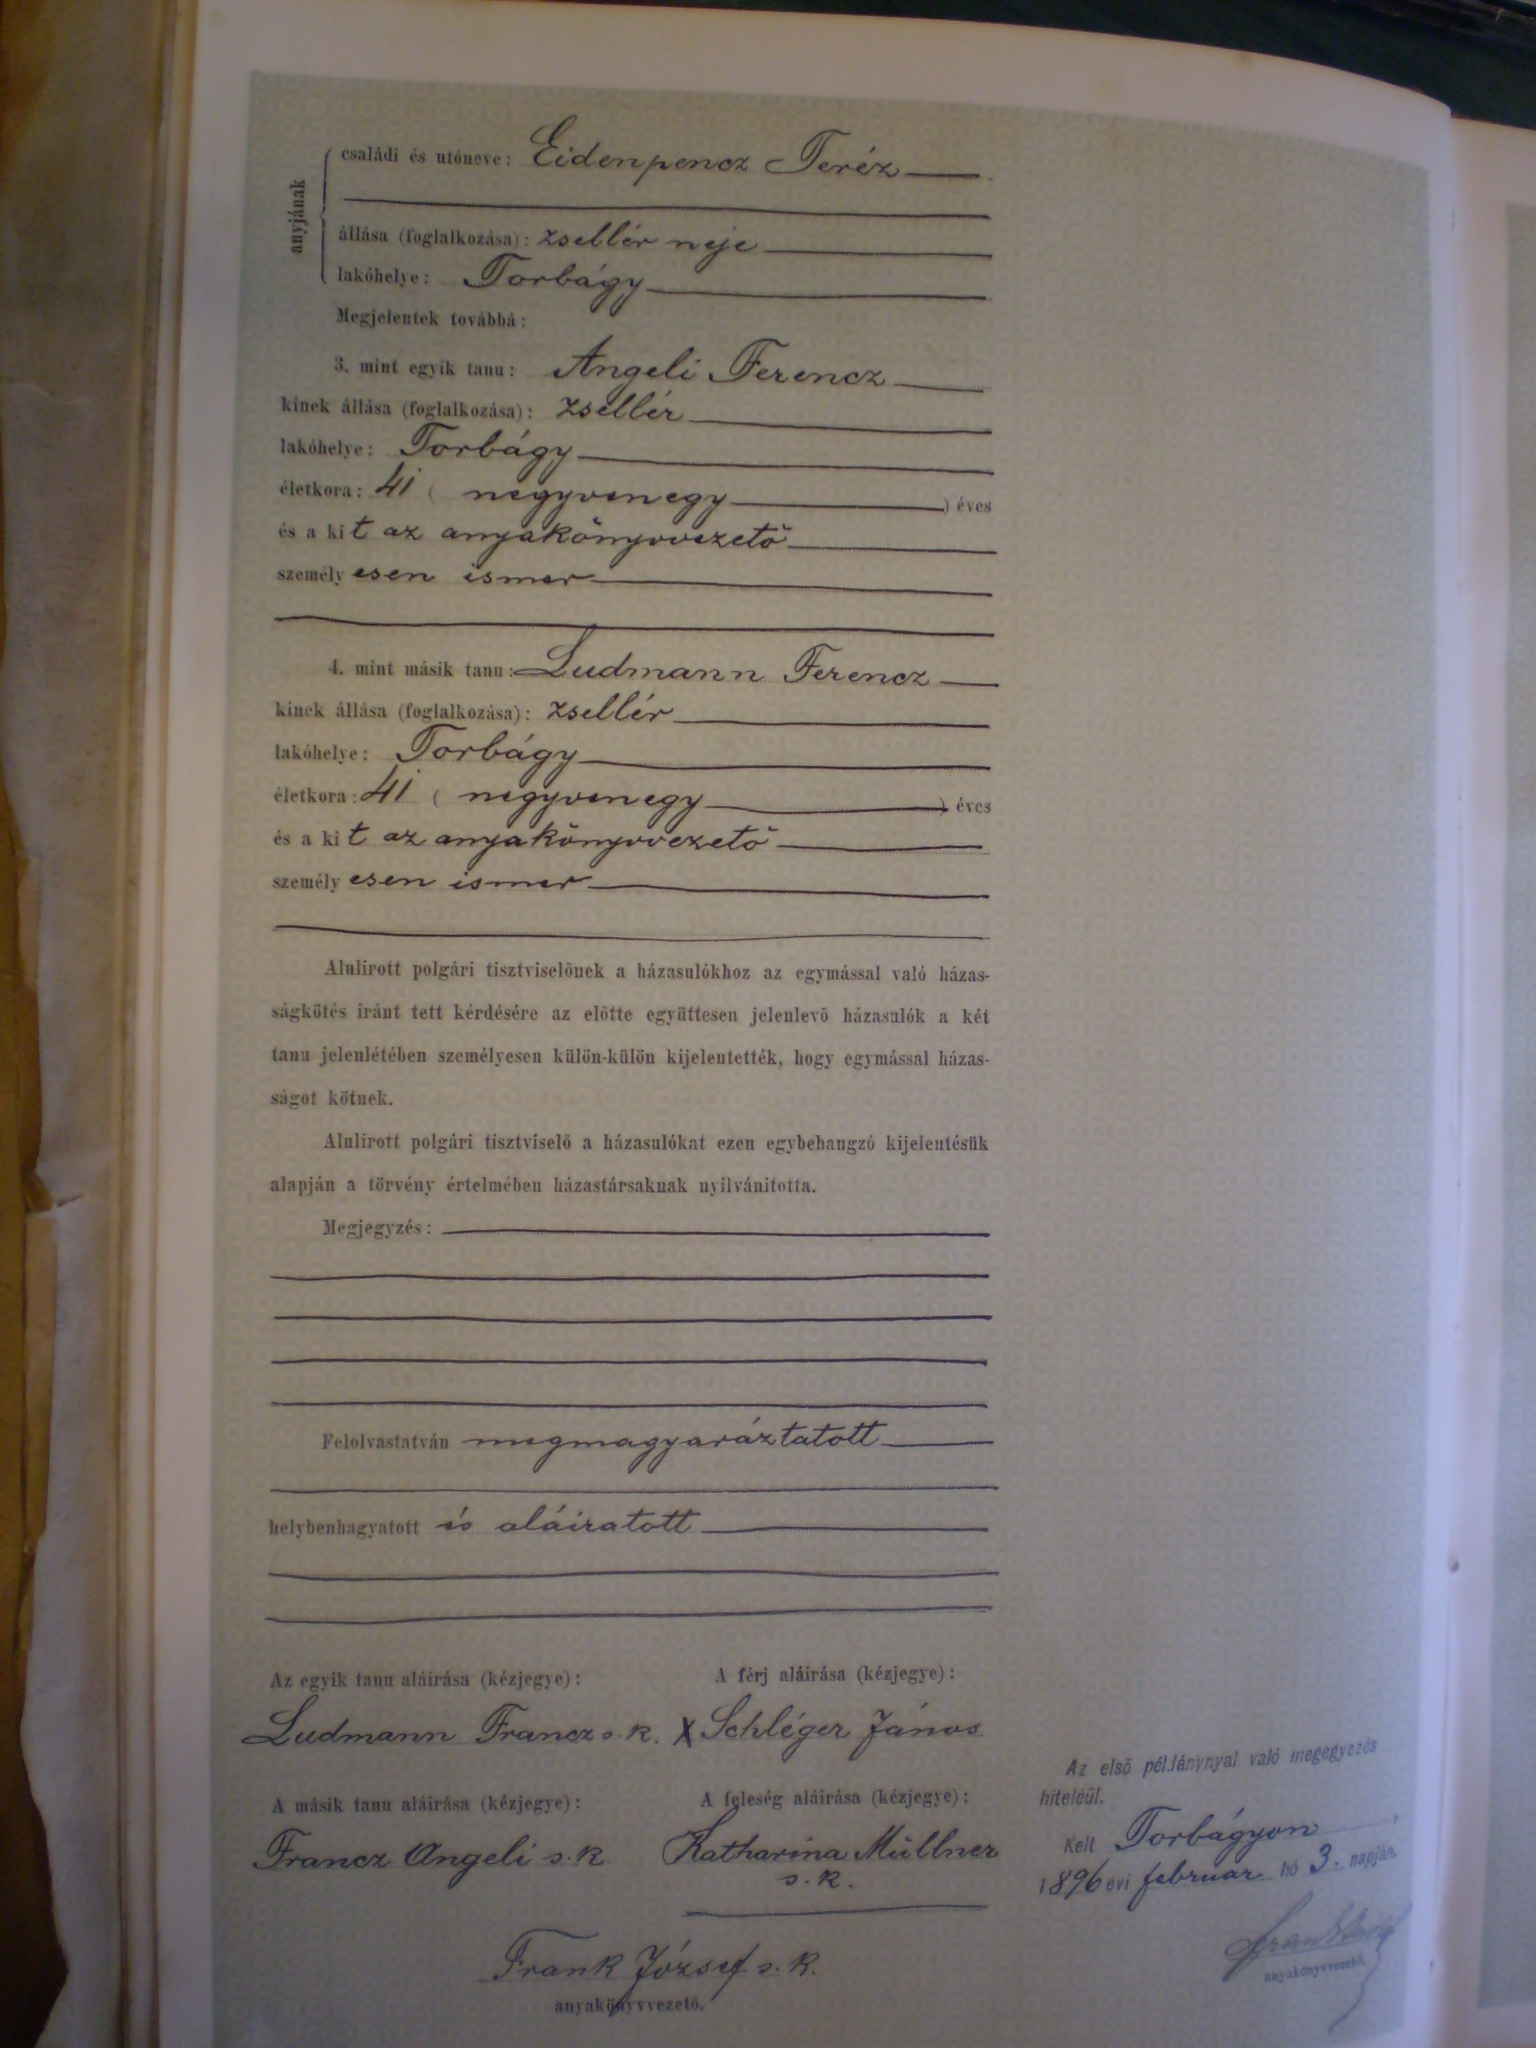 anyjának
családi és utóneve: Eidenpencz Teréz
állása (foglalkozása): zsellér neje
lakóhelye: Torbágy
Megjelentek továbbá:
3. mint egyik tanu: Angeli Ferencz
kinek állása (foglalkozása): zsellér
lakóhelye: Torbágy
életkora: 41 ( negyvenegy ) éves
és a kit az anyakönyvvezető
személyesen ismer
4. mint másik tanu: Ludmann Ferencz
kinek állása (foglalkozása): zsellér
lakóhelye: Torbágy
életkora: 41 ( negyvenegy ) éves
és a kit az anyakönyvvezető
személyesen ismer
Alulirott polgári tisztviselőnek a házasulókhoz az egymással való házas-
ságkötés iránt tett kérdésére az előtte együttesen jelenlevő házasulók a két
tanu jelenlétében személyesen külön-külön kijelentették, hogy egymással házas-
ságot kötnek.
Alulirott polgári tisztviselő a házasulókat ezen egybehangzó kijelentésük
alapján a törvény értelmében házastársaknak nyilvánitotta.
Megjegyzés:
Felolvastatván megmagyaráztatott
helybenhagyatott és aláiratott
Az egyik tanu aláirása (kézjegye): A férj aláirása (kézjegye):
Ludmann Francz s. k. X Schléger János
A másik tanu aláirása (kézjegye): A feleség aláirása (kézjegye):
Francz Angeli s. k. Katharina Müllner
s. k.
Frank József s. k.
anyakönyvvezető.
Az első példánynyal való megegyezés
hiteléül.
Kelt Torbágyon
1896 évi februar hó 3. napján.
anyakönyvvezető.